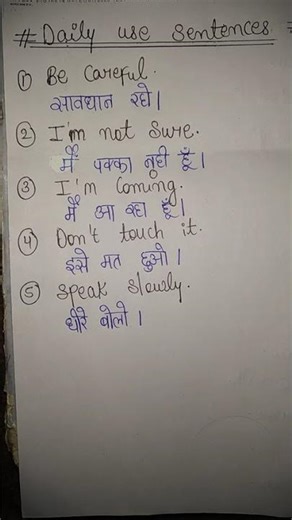 # Daily use sentences =
① Be Careful.
सावधान रहो।
② I'm not sure.
मैं पक्का नही हूँ।
③ I'm Coming.
मैं आ रहा हूँ।
④ Don't touch it.
इसे मत छुओ।
⑤ speak slowly.
धीरे बोलो।